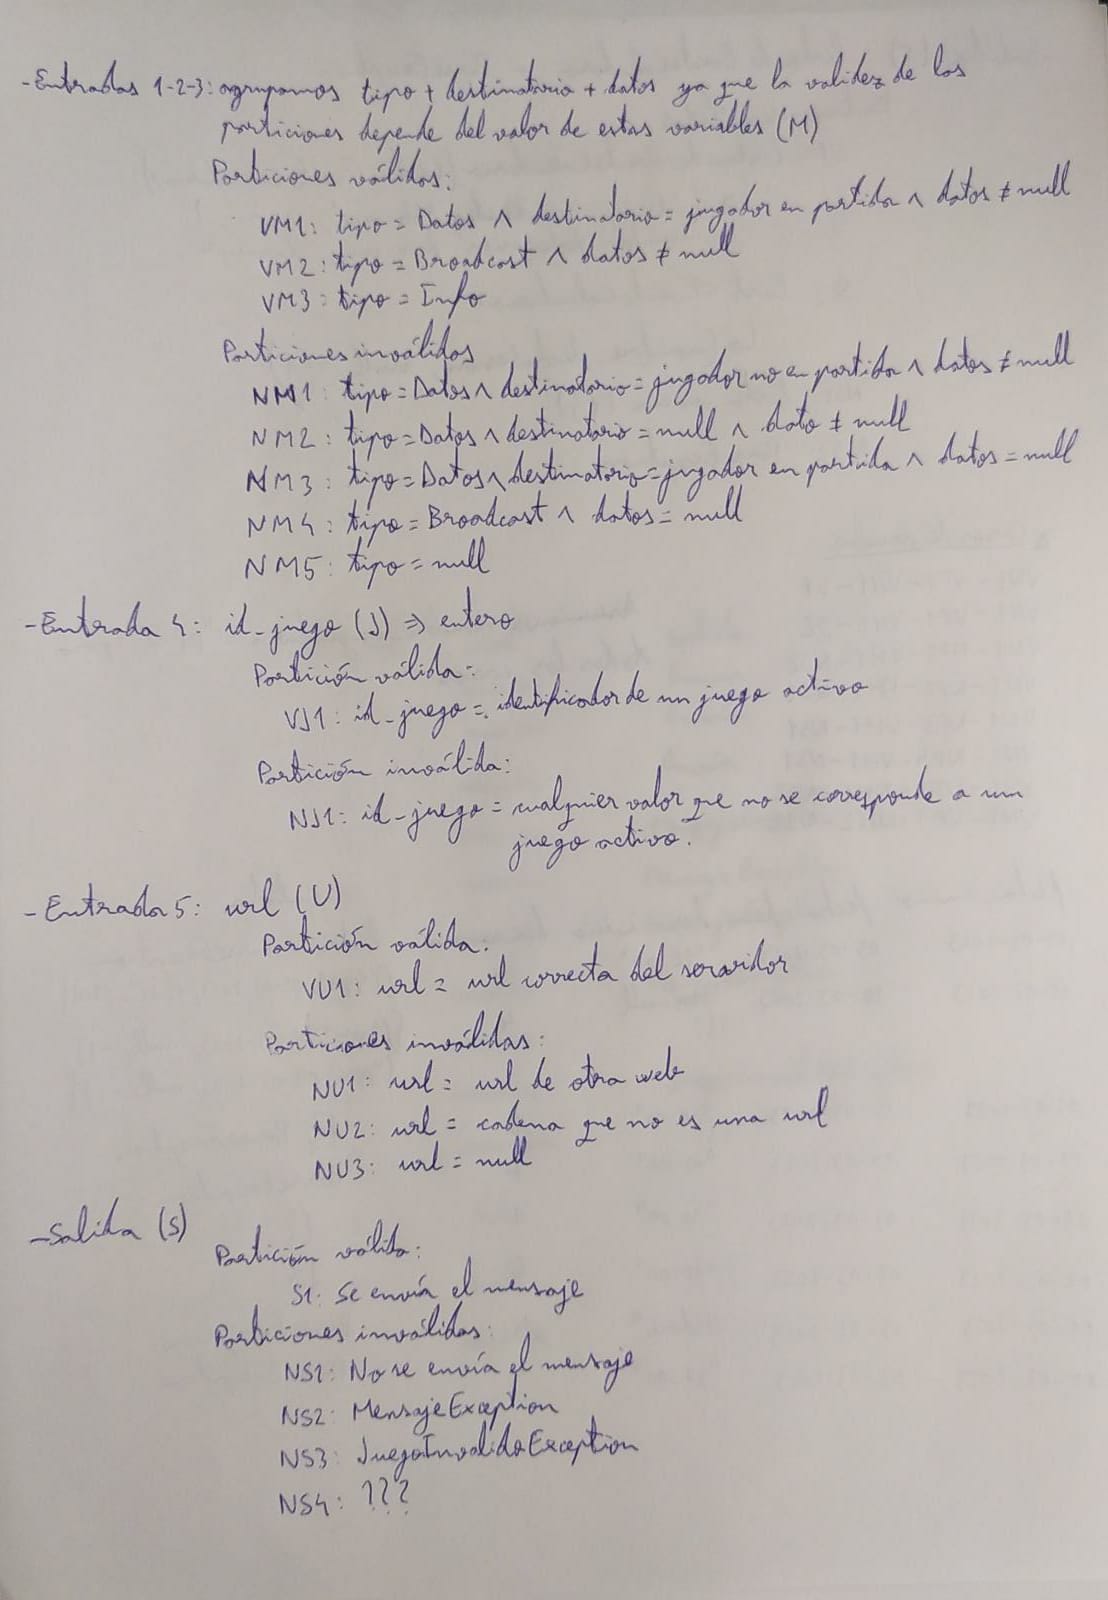 -Entradas 1-2-3: agrupamos tipo + destinatario + datos ya que la validez de las
particiones depende del valor de estas variables (M)
Particiones válidas:
VM1: tipo = Datos ∧ destinatario = jugador en partida ∧ datos ≠ null
VM2: tipo = Broadcast ∧ datos ≠ null
VM3: tipo = Info
Particiones inválidas
NM1: tipo = Datos ∧ destinatario = jugador no en partida ∧ datos ≠ null
NM2: tipo = Datos ∧ destinatario = null ∧ dato ≠ null
NM3: tipo = Datos ∧ destinatario = jugador en partida ∧ datos = null
NM4: tipo = Broadcast ∧ datos = null
NM5: tipo = null
-Entrada 4: id_juego (J) ⇒ entero
Partición válida:
VJ1: id_juego = identificador de un juego activo
Partición inválida:
NJ1: id_juego = cualquier valor que no se corresponde a un
juego activo.
-Entrada 5: url (U)
Partición válida:
VU1: url = url correcta del servidor
Particiones inválidas:
NU1: url = url de otra web
NU2: url = cadena que no es una url
NU3: url = null
-Salida (S)
Partición válida:
S1: Se envía el mensaje
Particiones inválidas:
NS1: No se envía el mensaje
NS2: MensajeException
NS3: JuegoInvalidoException
NS4: ???